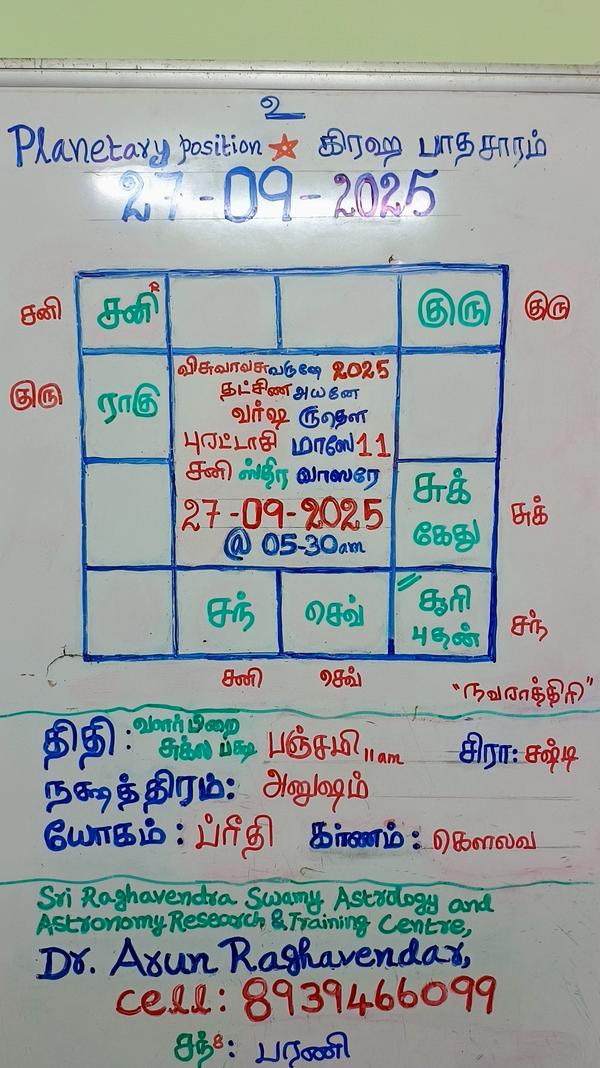 உ
Planetary position கிரஹ பாதசாரம்
27-09-2025
சனி சனி R குரு குரு
விசுவாவசுவருஷே 2025
தட்சிண அயனே
குரு ராகு வர்ஷ ருதௌ
புரட்டாசி மாஸே 11
சனி ஸ்திர வாஸரே
27-09-2025
@ 05-30am
சுக்
கேது சுக்
சந் செவ் சூரி
புதன் சந்
சனி செவ்
"நவராத்திரி"
திதி : வளர்பிறை சுக்ல பக்ஷ பஞ்சமி 11am சிரா: சஷ்டி
நக்ஷத்திரம்: அனுஷம்
யோகம் : ப்ரீதி கர்ணம் : கௌலவ
Sri Raghavendra Swamy Astrology and
Astronomy Research & Training Centre,
Dr. Arun Raghavendar,
cell: 8939466099
சந் 8 : பரணி